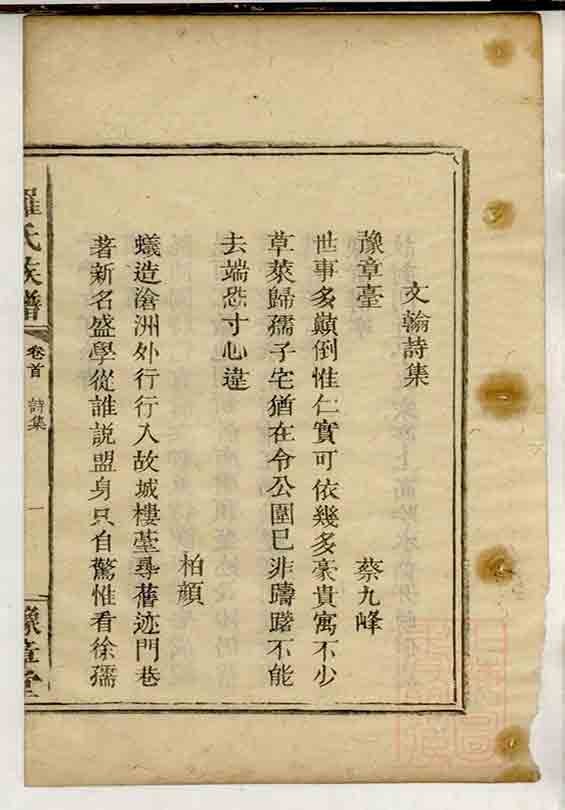 文翰詩集
豫章臺
蔡九峰
世事多顛倒惟仁實可依幾多豪貴寓不少
草萊歸孺子宅猶在令公圍已非躊躇不能
去端恐寸心違
柏顔
蟻造滄洲外行行入故城樓臺尋舊迹門巷
著新名盛學從誰説盟身只自驚惟看徐孺
羅氏族譜
卷首
詩集
一
豫章堂